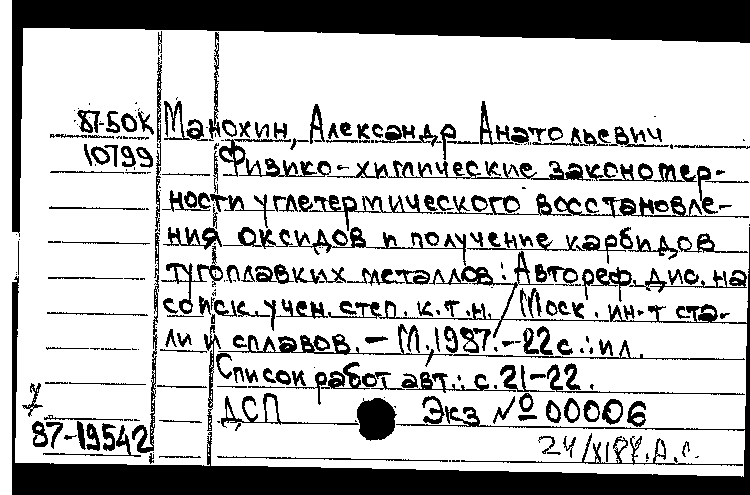 87-50К Манохин, Александр Анатольевич
10799 Физико-химические закономер-
ности углетермического восстановле-
ния оксидов и получение карбидов
тугоплавких металлов: Автореф. дис. на
соиск. учен. степ. к.т.н. / Моск. ин-т ста-
ли и сплавов. – М., 1987. – 22 с.: ил.
Список работ авт.: с. 21-22.
ДСП Экз № 00006
87-19542